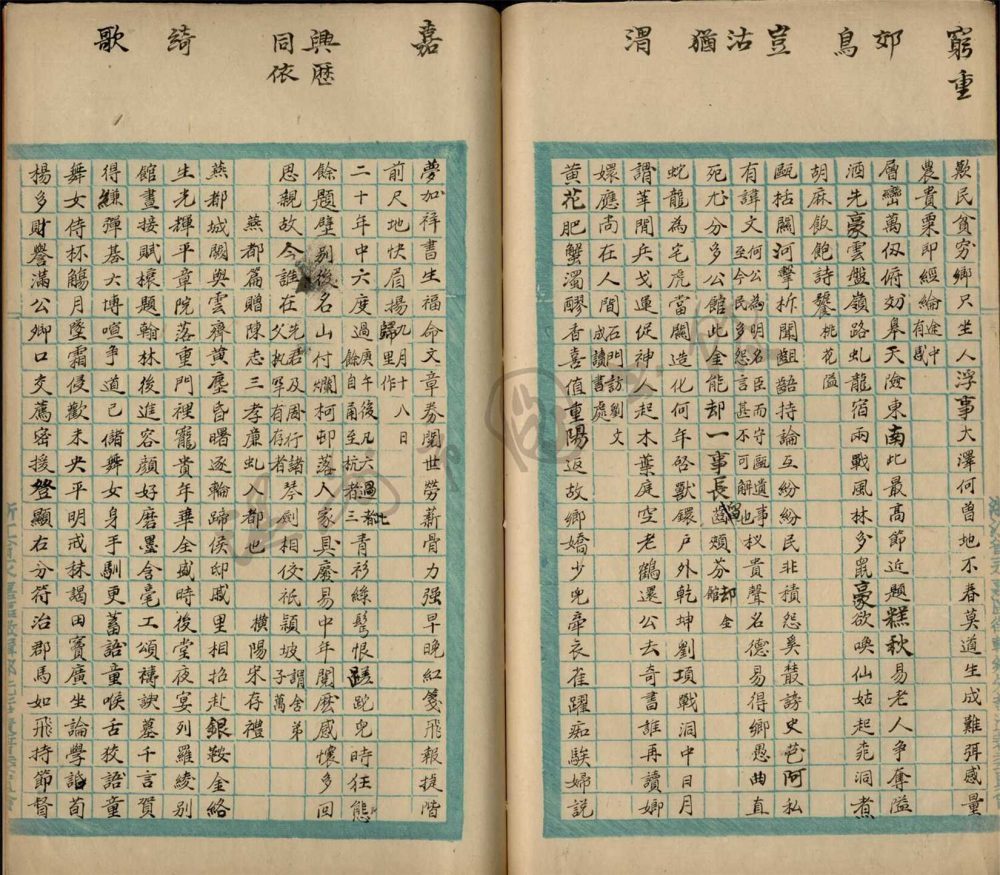 窮重
郊
鳥
豈
沽
猶
渭
歎民貧穷鄉只坐人浮事大澤何曽地不春莫道生成難弭感量
農貴粟即經綸途中有感
層巒萬仭俯初皋天險東南此最高節近題糕秋易老人争奪隘
酒先豪雲盤嶺路虬龍宿雨戰風林多鼠豪欲喚仙姑起桃洞煮
胡麻飯飽詩饕桃花隘
甌栝關河擊柝聞齟齬持論互紛紛民非積怨奚叢謗史苟阿私
有諱文何公為明名臣而守甌遺事至今民多怨言甚不可解也权貴聲名德易得鄉愚曲直
死尤分多公館此全能却一事長留齒頰芬却金館
蛇龍為宅虎當關造化何年啓獸鐶戶外乾坤劉項戰洞中日月
謂華閒兵戈運促神人起木葉庭空老鶴還公去奇書誰再讀嫏
嬛應尚在人間石門訪劉文成讀書處
黄花肥蟹濁醪香喜值重陽返故鄉嬌少兒牽衣雀躍痴騃婦説
嘉
興歷
同依
綺
歌
夢加祥書生福命文章券閥世勞薪骨力强早晚紅箋飛報捷階
前尺地快眉揚九月十八日歸里作
二十年中六度過庚午後凡六過者七餘自甬至杭者三青衫絲鬓恨蹉跎兒時狂態
餘題壁别後名山付爛柯邨落人家具廢易中年閱歷感懷多回
思親故今誰在先君及周行諸父執罕有存者琴劍相佼祇穎坡謂舍弟子萬
燕都篇贈陳志三孝廉虬入都也
横陽宋存禮
燕都城闕與雲齊黄塵昏曙逐輪蹄侯邸戚里相招赴銀鞍金絡
生光輝平章院落重門裡寵貴年華全盛時後堂夜宴列羅綾别
館晝接賦榱題翰林後進容顔好磨墨含毫工頌禱諛墓千言賀
得縑彈棊六博喧争道已儲舞女身手馴更蓄語童喉舌狡語童
舞女侍杯觴月墜霜侵歡未央平明戒秣謁田竇廣坐論學詆荀
楊多財譽滿公卿口交薦密援登顯右分符治郡馬如飛持節督